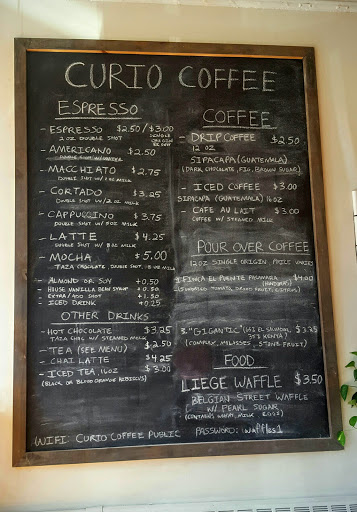 CURIO COFFEE
ESPRESSO
- ESPRESSO $2.50/$3.00
2 OZ DOUBLE SHOT SINGLE ORIGIN
- AMERICANO $2.50
DOUBLE SHOT W/ WATER
- MACCHIATO $2.75
DOUBLE SHOT W/ MILK
- CORTADO $3.25
DOUBLE SHOT W/ 2OZ MILK
- CAPPUCCINO $3.75
DOUBLE SHOT W/ 5OZ MILK
- LATTE $4.25
DOUBLE SHOT W/ 8OZ MILK
- MOCHA $5.00
TAZA CHOCOLATE, DOUBLE SHOT, 8OZ MILK
- ALMOND OR SOY +0.50
- HOUSE VANILLA BEAN SYRUP +0.50
- EXTRA/ADD SHOT +1.50
- ICED DRINK +0.25
OTHER DRINKS
- HOT CHOCOLATE $3.25
TAZA CHOC W/ STEAMED MILK
- TEA (SEE MENU) $2.50
- CHAI LATTE $4.25
- ICED TEA, 16OZ $3.00
(BLACK OR BLOOD ORANGE HIBISCUS)
WIFI: CURIO COFFEE PUBLIC
COFFEE
- DRIP COFFEE $2.50
12 OZ
SIPACAPA (GUATEMALA)
(DARK CHOCOLATE, FIG, BROWN SUGAR)
- ICED COFFEE $3.00
SIPACAPA (GUATEMALA) 16OZ
- CAFE AU LAIT $3.00
COFFEE W/ STEAMED MILK
POUR OVER COFFEE
12OZ SINGLE ORIGIN PRICE VARIES
1. FINCA EL PUENTE $4.00
TOMATO, DRIED FRUIT,
3. "GIGANTIC" EL SALVADOR, $3.25
KENYA)
(COMPLEX, MOLASSES, STONE FRUIT)
FOOD
LIEGE WAFFLE $3.50
BELGIAN STREET WAFFLE
W/ PEARL SUGAR
(CONTAINS WHEAT, MILK, EGGS)
PASSWORD: waffles1